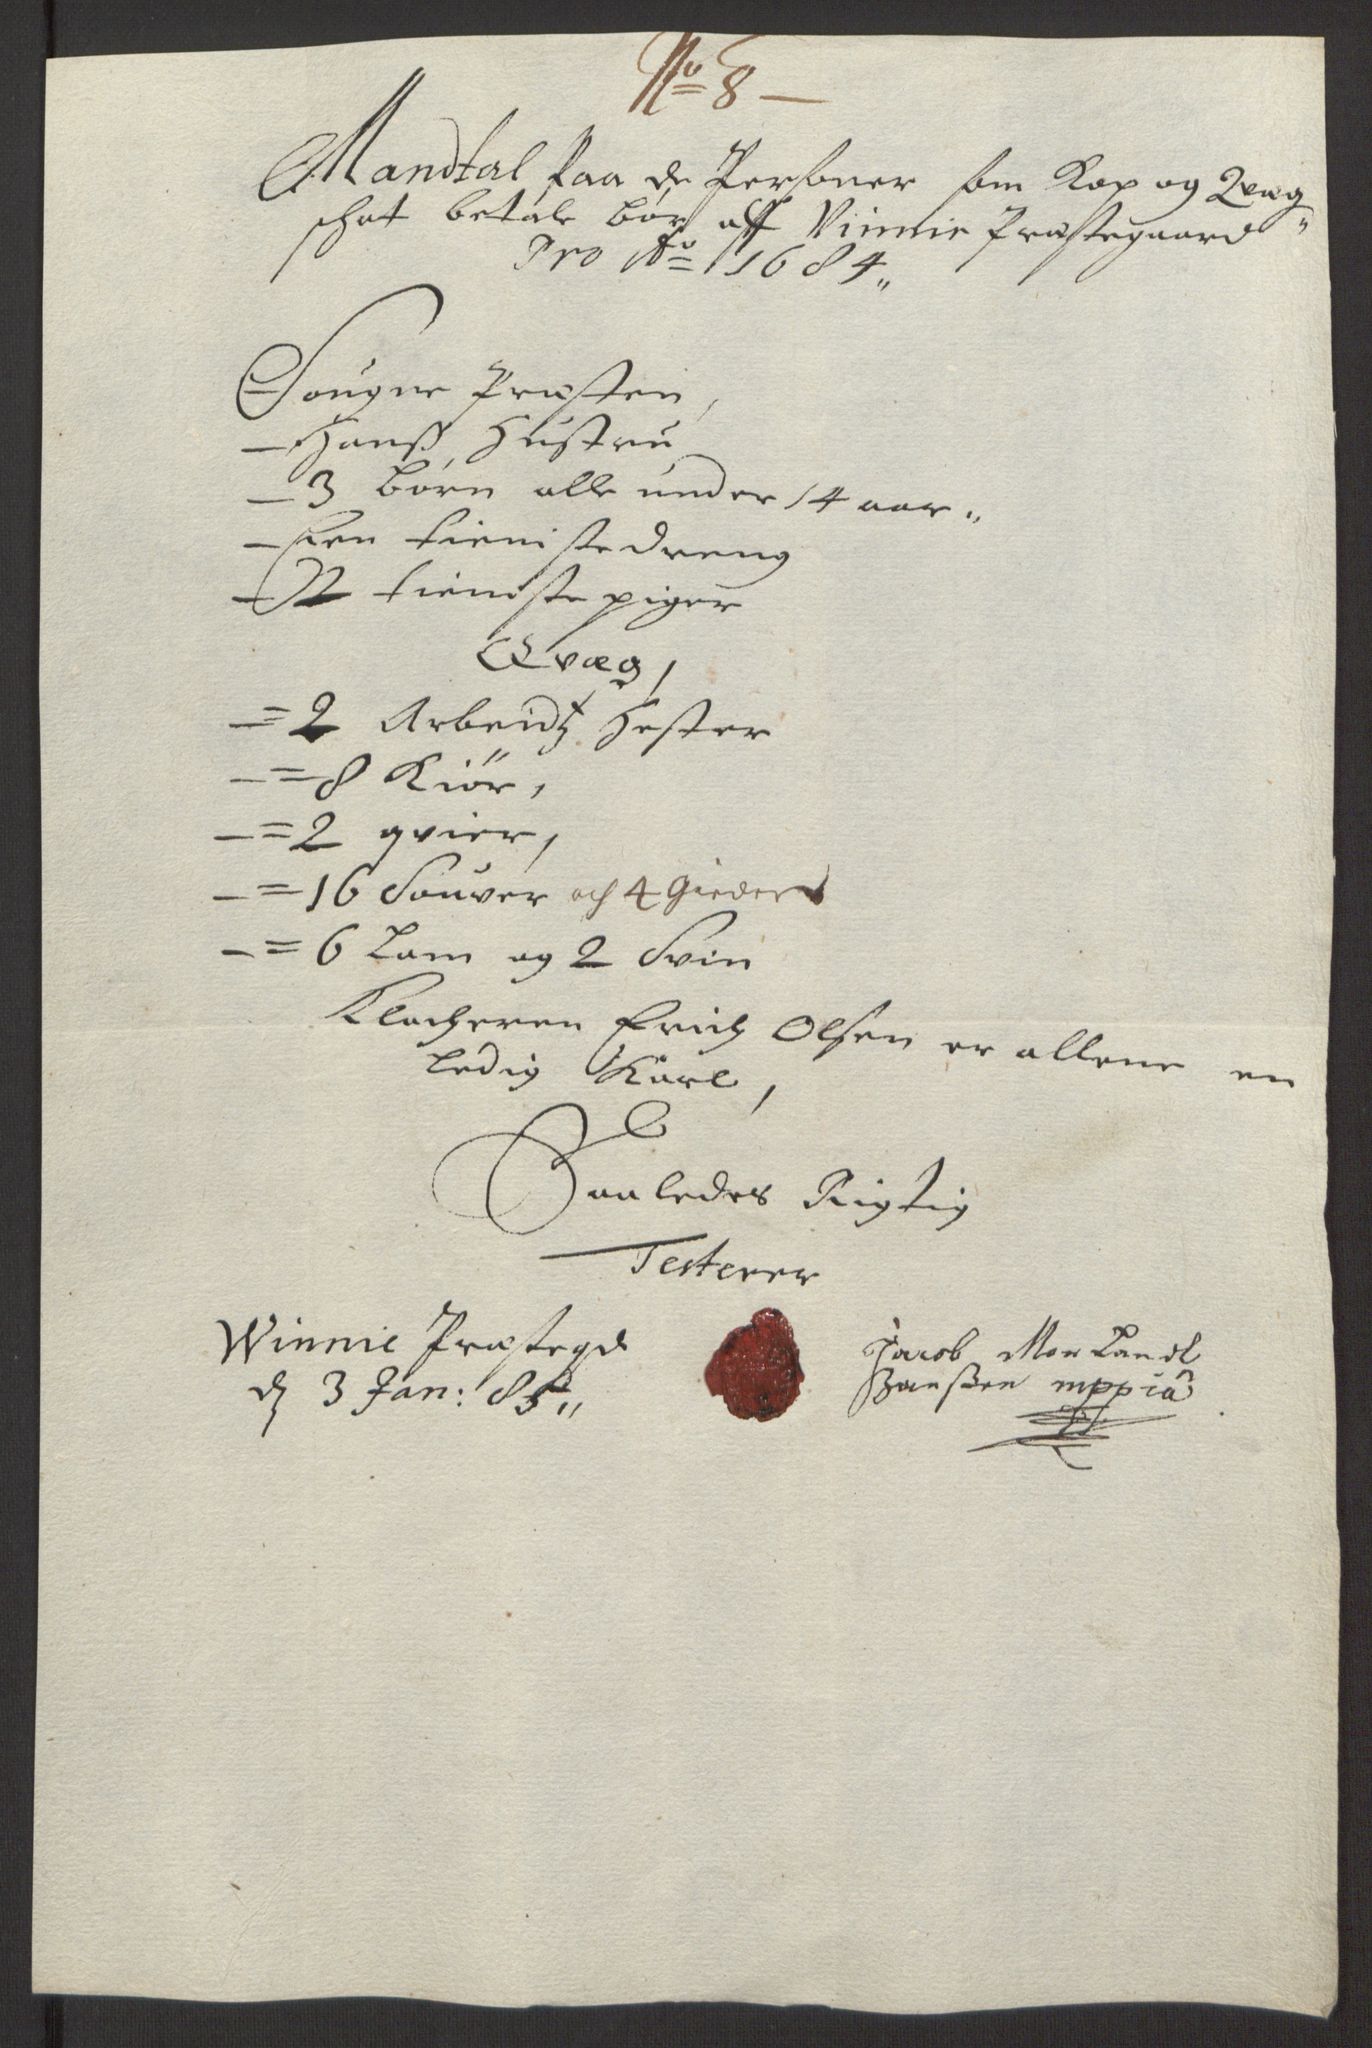 No 8 —
Mandtal Paa de Personer som Kop og Qvæg
schat betale bør aff Vinnie Præstegaard
Pro Ao 1684„
Sougne Præsten,
— Hanß Hustru
— 3 børn alle under 14 aar„
— Een tieniste dreng
— 2 tieniste piger
Qvæg,
— = 2 Arbeidtz Hester
— = 8 Kiör,
— = 2 qvier,
— = 16 Souver och 4 Gieder
— = 6 Lam og 2 Svin
Klocheren Erich Olsen er allene en
ledig Karl,
Saaledes Rigtig
Testerer
Winnie Præstegd
d 3 Jan: 85„
Jacob Morland
Hanßen mppia